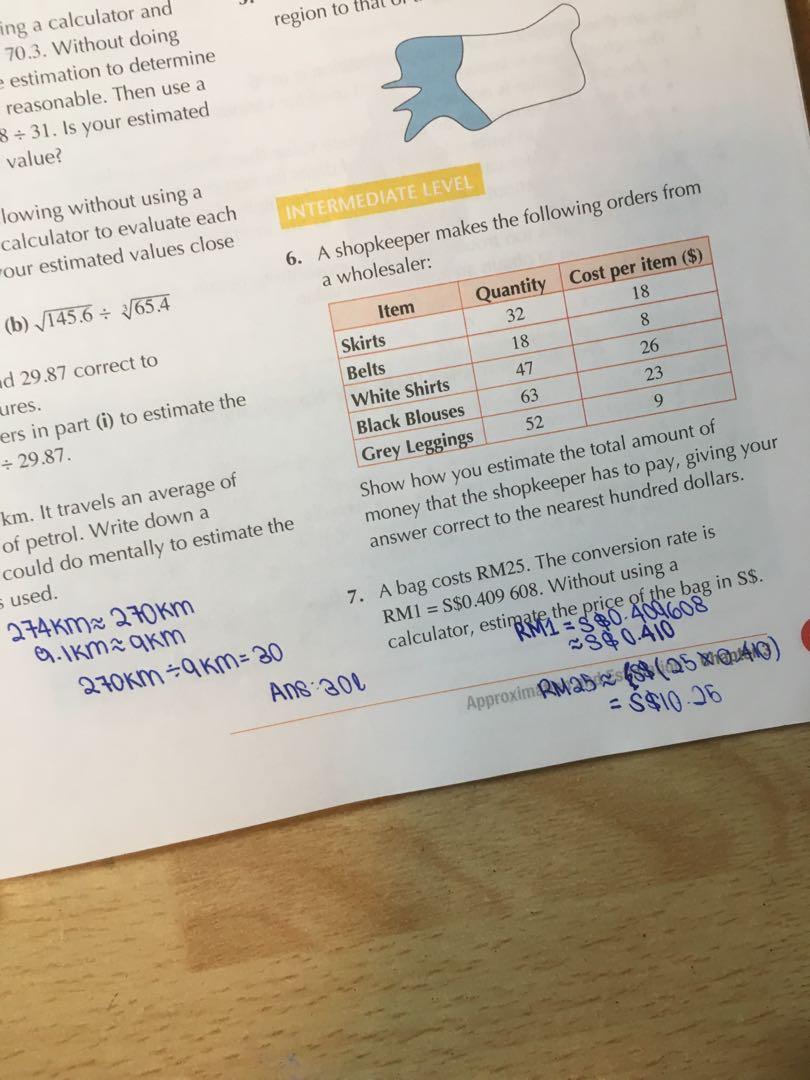 ing a calculator and
70.3. Without doing
estimation to determine
reasonable. Then use a
8 ÷ 31. Is your estimated
value?
lowing without using a
calculator to evaluate each
our estimated values close
(b) √145.6 ÷ ∛65.4
d 29.87 correct to
ures.
ers in part (i) to estimate the
÷ 29.87.
km. It travels an average of
of petrol. Write down a
could do mentally to estimate the
s used.
274km ≈ 270km
9.1km ≈ 9km
270km ÷ 9km = 30
Ans: 30l
region to that
INTERMEDIATE LEVEL
6. A shopkeeper makes the following orders from
a wholesaler:
Item Quantity Cost per item ($)
Skirts 32 18
Belts 18 8
White Shirts 47 26
Black Blouses 63 23
Grey Leggings 52 9
Show how you estimate the total amount of
money that the shopkeeper has to pay, giving your
answer correct to the nearest hundred dollars.
7. A bag costs RM25. The conversion rate is
RM1 = S$0.409 608. Without using a
calculator, estimate the price of the bag in S$.
RM1 = S$0.409608
≈ S$0.410
RM25 ≈ S$(25 × 0.410)
= S$10.25